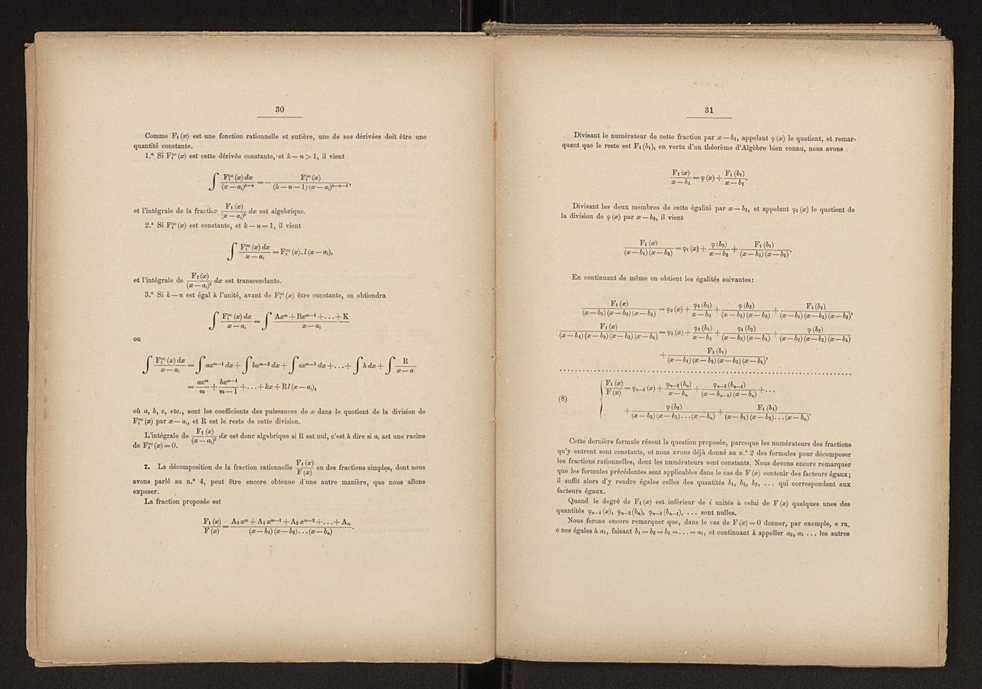 30
Comme F₁ (x) est une fonction rationnelle et entière, une de ses dérivées doit être une
quantité constante.
1.º Si F₁⁽ⁿ⁾ (x) est cette dérivée constante, et k — n > 1, il vient
∫ F₁⁽ⁿ⁾ (x) dx / (x — aᵢ)ᵏ⁻ⁿ = — F₁⁽ⁿ⁾ (x) / (k — n — 1) (x — aᵢ)ᵏ⁻ⁿ⁻¹,
et l'intégrale de la fraction F₁ (x) / (x — aᵢ)ᵏ dx est algebrique.
2.º Si F₁⁽ⁿ⁾ (x) est constante, et k — n = 1, il vient
∫ F₁⁽ⁿ⁾ (x) dx / x — aᵢ = F₁⁽ⁿ⁾ (x). l (x — aᵢ),
et l'intégrale de F₁ (x) / (x — aᵢ)ᵏ dx est transcendante.
3.º Si k — n est égal à l'unité, avant de F₁⁽ⁿ⁾ (x) être constante, on obtiendra
∫ F₁⁽ⁿ⁾ (x) dx / x — aᵢ = ∫ Axᵐ + Bxᵐ⁻¹ + . . . + K / x — aᵢ
ou
∫ F₁⁽ⁿ⁾ (x) dx / x — aᵢ = ∫ axᵐ⁻¹ dx + ∫ bxᵐ⁻² dx + ∫ cxᵐ⁻³ dx + . . . + ∫ h dx + ∫ R / x — a
= axᵐ / m + bxᵐ⁻¹ / m — 1 + . . . + hx + R l (x — aᵢ),
où a, b, c, etc., sont les coefficients des puissances de x dans le quotient de la division de
F₁⁽ⁿ⁾ (x) par x — aᵢ, et R est le reste de cette division.
L'intégrale de F₁ (x) / (x — aᵢ)ᵏ dx est donc algebrique si R est nul, c'est à dire si aᵢ est une racine
de F₁⁽ⁿ⁾ (x) = 0.
7. La décomposition de la fraction rationnelle F₁ (x) / F (x) en des fractions simples, dont nous
avons parlé au n.º 4, peut être encore obtenue d'une autre manière, que nous allons
exposer.
La fraction proposée est
F₁ (x) / F (x) = A₀ xⁿ + A₁ xⁿ⁻¹ + A₂ xⁿ⁻² + . . . + Aₙ / (x — b₁) (x — b₂) . . . (x — bₙ).
31
Divisant le numérateur de cette fraction par x — b₁, appelant φ (x) le quotient, et remar-
quant que le reste est F₁ (b₁), en vertu d'un théorème d'Algèbre bien connu, nous avons
F₁ (x) / x — b₁ = φ (x) + F₁ (b₁) / x — b₁.
Divisant les deux membres de cette égalité par x — b₂, et appelant φ₁ (x) le quotient de
la division de φ (x) par x — b₂, il vient
F₁ (x) / (x — b₁) (x — b₂) = φ₁ (x) + φ (b₂) / x — b₂ + F₁ (b₁) / (x — b₁) (x — b₂).
En continuant de même on obtient les égalités suivantes:
F₁ (x) / (x — b₁) (x — b₂) (x — b₃) = φ₂ (x) + φ₁ (b₃) / x — b₃ + φ (b₂) / (x — b₂) (x — b₃) + F₁ (b₁) / (x — b₁) (x — b₂) (x — b₃),
F₁ (x) / (x — b₁) (x — b₂) (x — b₃) (x — b₄) = φ₃ (x) + φ₂ (b₄) / x — b₄ + φ₁ (b₃) / (x — b₃) (x — b₄) + φ (b₂) / (x — b₂) (x — b₃) (x — b₄)
+ F₁ (b₁) / (x — b₁) (x — b₂) (x — b₃) (x — b₄),
. . . . . . . . . . . . . . . . . . . . . . . . . . . . . .
F₁ (x) / F (x) = φₙ₋₁ (x) + φₙ₋₂ (bₙ) / x — bₙ + φₙ₋₃ (bₙ₋₁) / (x — bₙ₋₁) (x — bₙ) + . . .
(8)
+ φ (b₂) / (x — b₂) (x — b₃) . . . (x — bₙ) + F₁ (b₁) / (x — b₁) (x — b₂) . . . (x — bₙ).
Cette dernière formule résout la question proposée, parceque les numérateurs des fractions
qu'y entrent sont constants, et nous avons déjà donné au n.º 2 des formules pour décomposer
les fractions rationnelles, dont les numérateurs sont constants. Nous devons encore remarquer
que les formules précédentes sont applicables dans le cas de F (x) contenir des facteurs égaux;
il suffit alors d'y rendre égales celles des quantités b₁, b₂, b₃, . . . qui correspondent aux
facteurs égaux.
Quand le degré de F₁ (x) est inférieur de i unités à celui de F (x) quelques unes des
quantités φₙ₋₁ (x), φₙ₋₂ (bₙ), φₙ₋₃ (bₙ₋₁), . . . sont nulles.
Nous ferons encore remarquer que, dans le cas de F (x) = 0 donner, par exemple, α ra,
c nes égales à a₁, faisant b₁ = b₂ = b₃ = . . . = a₁, et continuant à appeller a₂, a₃ . . . les autres